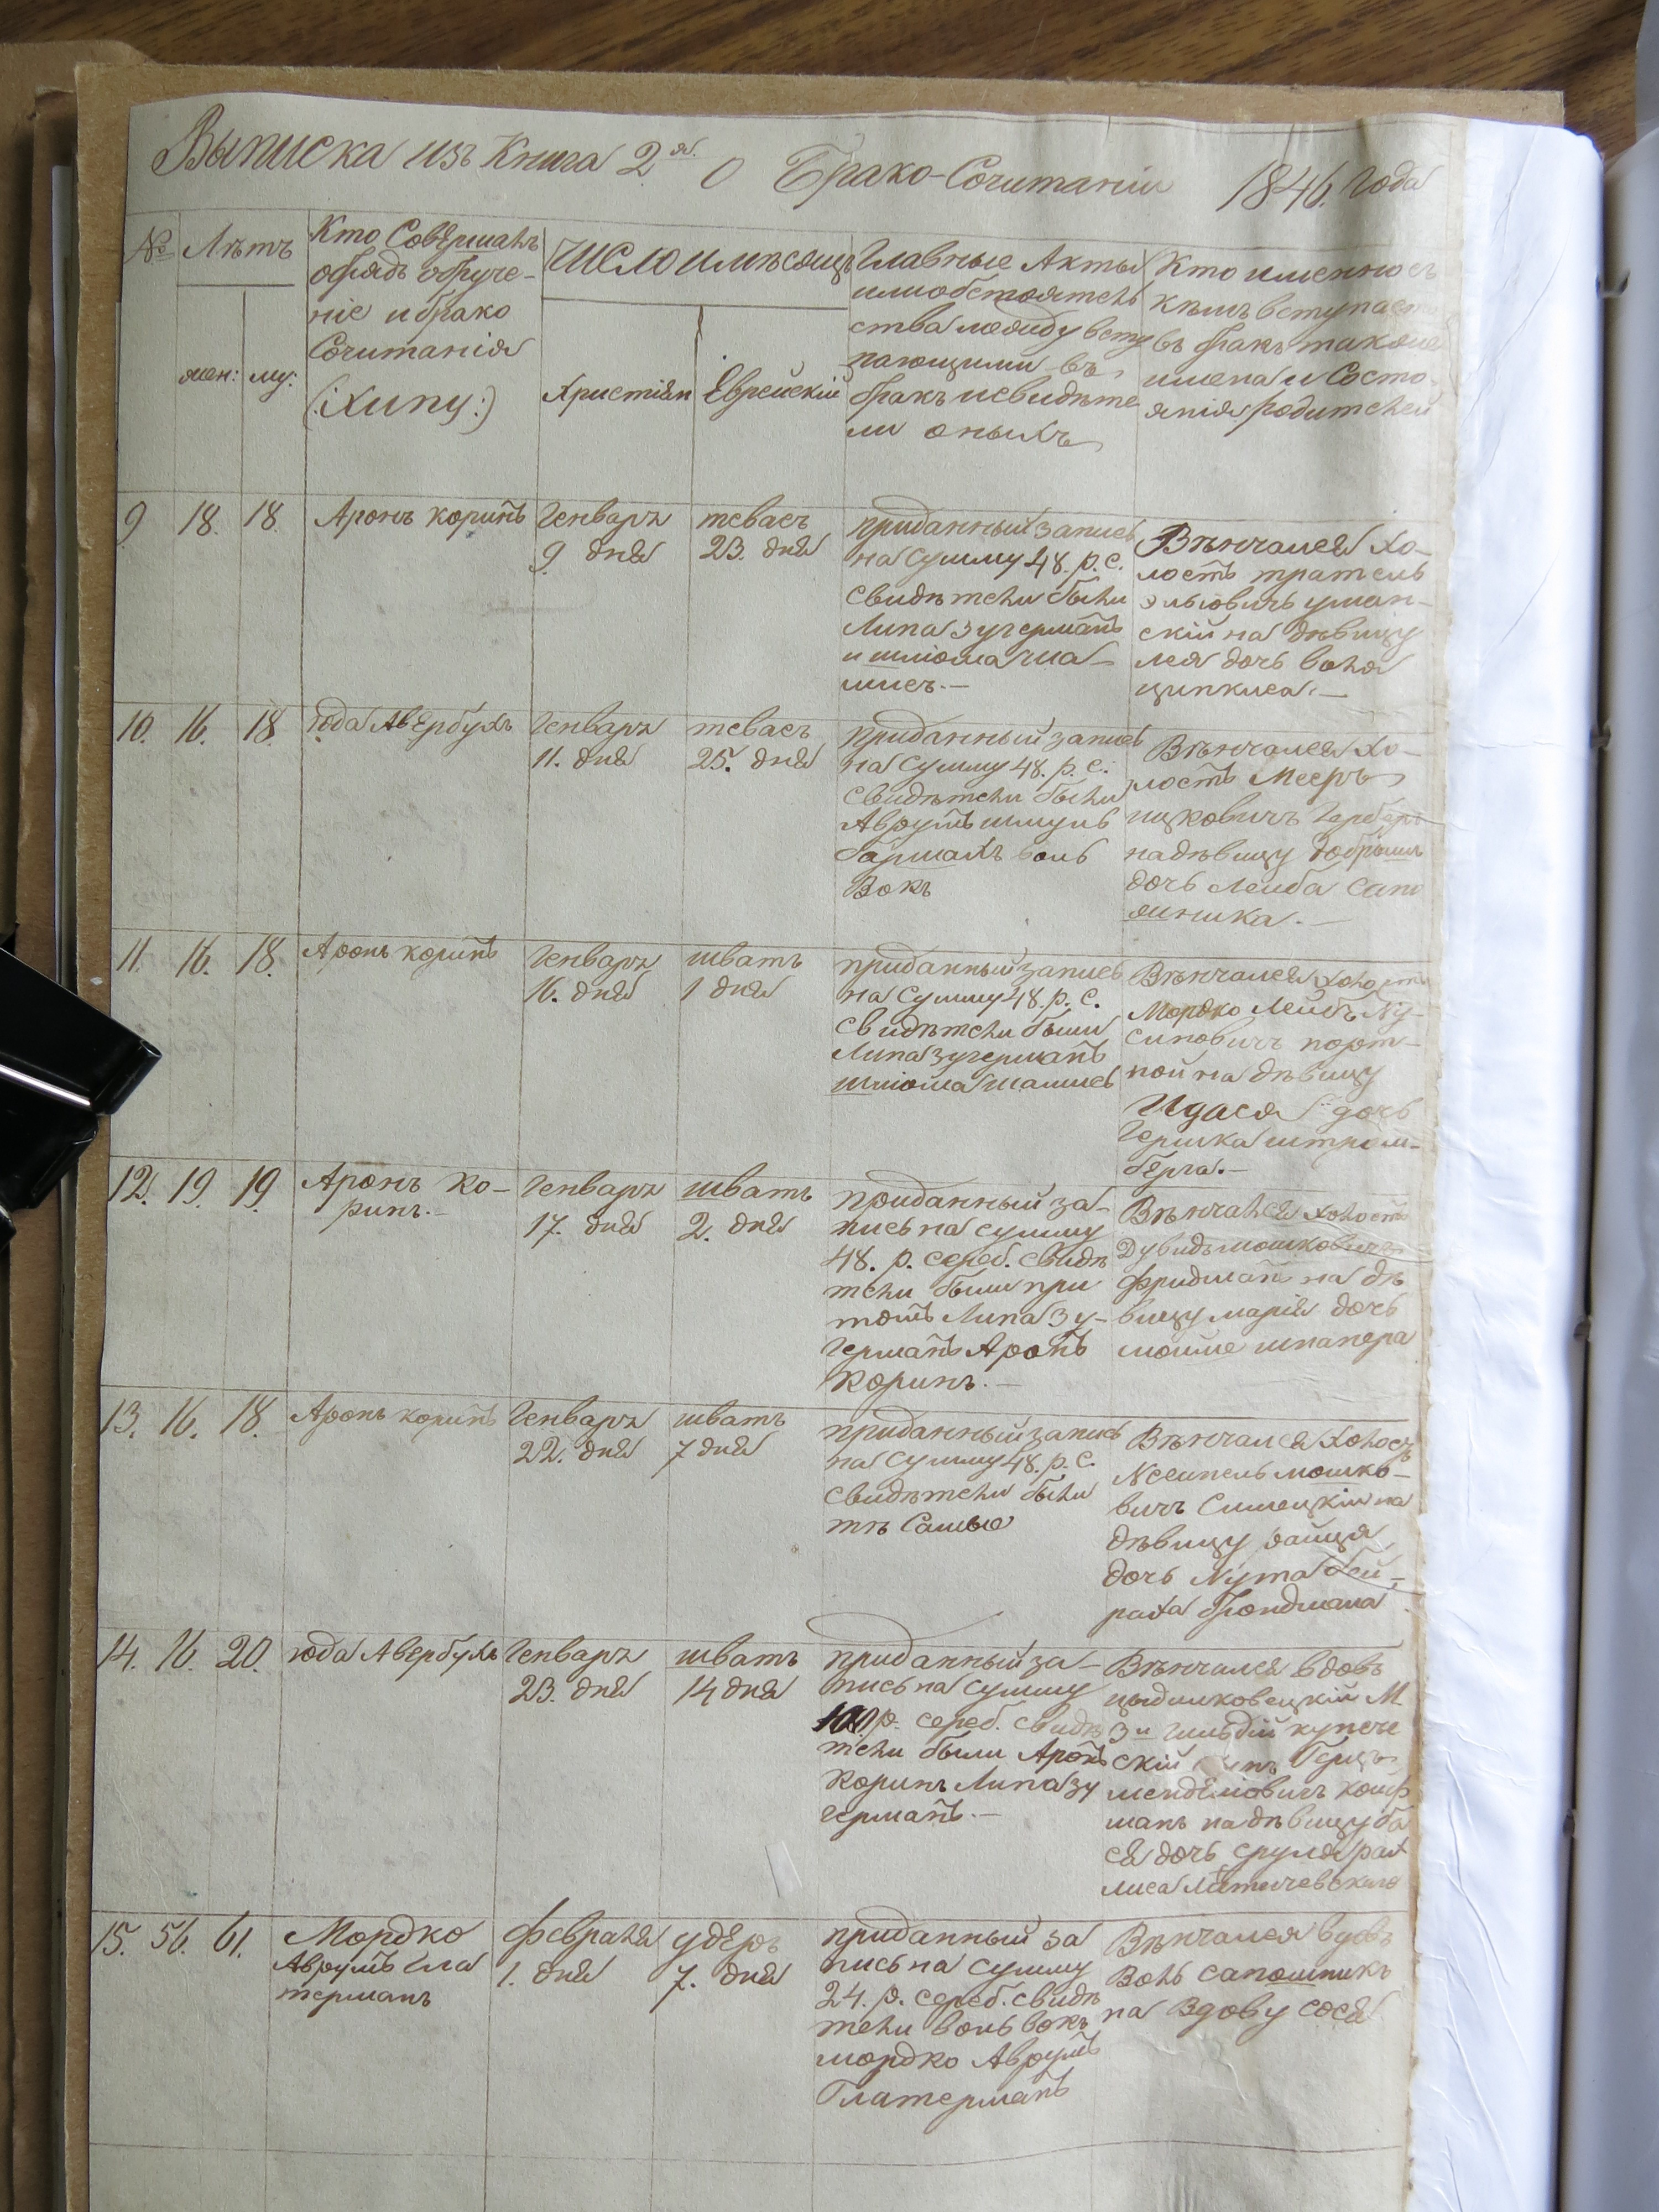 Выписка изъ Книга 2я. О Брако-Сочитаніи 1846. Года
№
Лѣтъ
жен: му:
Кто Совершалъ
обрядъ обруче-
ніе и брако
Сочитанія
(:Хипу:)
Число и мѣсяцъ
Христіян
Еврейскій
Главные Акты
или обстоятель
ства между всту
пающими въ
бракъ и свидѣте
ли оныхъ
Кто именно съ
кѣмъ вступаетъ
въ бракъ также
имена и Состо-
янія родителей
9 18. 18.
Аронъ коринъ
Генваря
9. дня
тевасъ
23. дня
приданный запись
на сумму 48. р. с.
свидѣтели были
Липа зугерманъ
и шліома ша-
мисъ.—
Вѣнчался хо-
лостъ
уман-
скій на дѣвицу
лея дочь воля
ципкиса.—
10. 16. 18.
юда Авербухъ
Генваря
11. дня
тевасъ
25. дня
приданный запись
на сумму 48. р. с.
свидѣтели были
Аврумъ шмуль
волъ
Вокъ
Вѣнчался хо-
лостъ Мееръ
ицковичъ Герберъ
на дѣвицу
дочь Лейба сапо
жника.—
11. 16. 18.
Аронъ коринъ
Генваря
16. дня
шватъ
1 дня
приданный запись
на сумму 48. р. с.
свидѣтели были
Липа зугерманъ
шліома шамисъ
Вѣнчался холостъ
Мордко Лейбъ Ну-
синовичъ порт-
ной на дѣвицу
Идася дочь
Гершка штром-
берга.—
12. 19. 19.
Аронъ ко-
ринъ.—
Генваря
17. дня
шватъ
2. дня
приданный за-
пись на сумму
48. р. сереб. свидѣ
тели были при
томъ Липа зу-
германъ Аронъ
коринъ.—
Вѣнчался холостъ
Дувидъ мошковичъ
фридманъ на дѣ
вицу марія дочь
мошие шпапера
13. 16. 18.
Аронъ коринъ
Генваря
22. дня
шватъ
7 дня
приданный запись
на сумму 48. р. с.
свидѣтели были
тѣ Самые
Вѣнчался холосъ
мошко-
вичъ на
дѣвицу
дочь Нута бей-
раха брондмана
14. 16. 20.
юда Авербухъ
Генваря
23. дня
шватъ
14 дня
приданный за-
пись на сумму
100 р. сереб. свидѣ
тели были Аронъ
коринъ Липа зу
германъ.—
Вѣнчался вдовъ
3й гильдіи купече
скій
мендельовичъ коиф
манъ на дѣвицу ба
ся дочь срулъ рах
миса Літичевского
15. 56. 61.
Мордко
Аврумъ гла
терманъ
февраля
1. дня
удеръ
7. дня
приданный за
пись на сумму
24. р. сереб. свидѣ
тели воль вокъ
мордко Аврумъ
Глатерманъ
Вѣнчался вдовъ
Воль сапошникъ
на вдову Сося